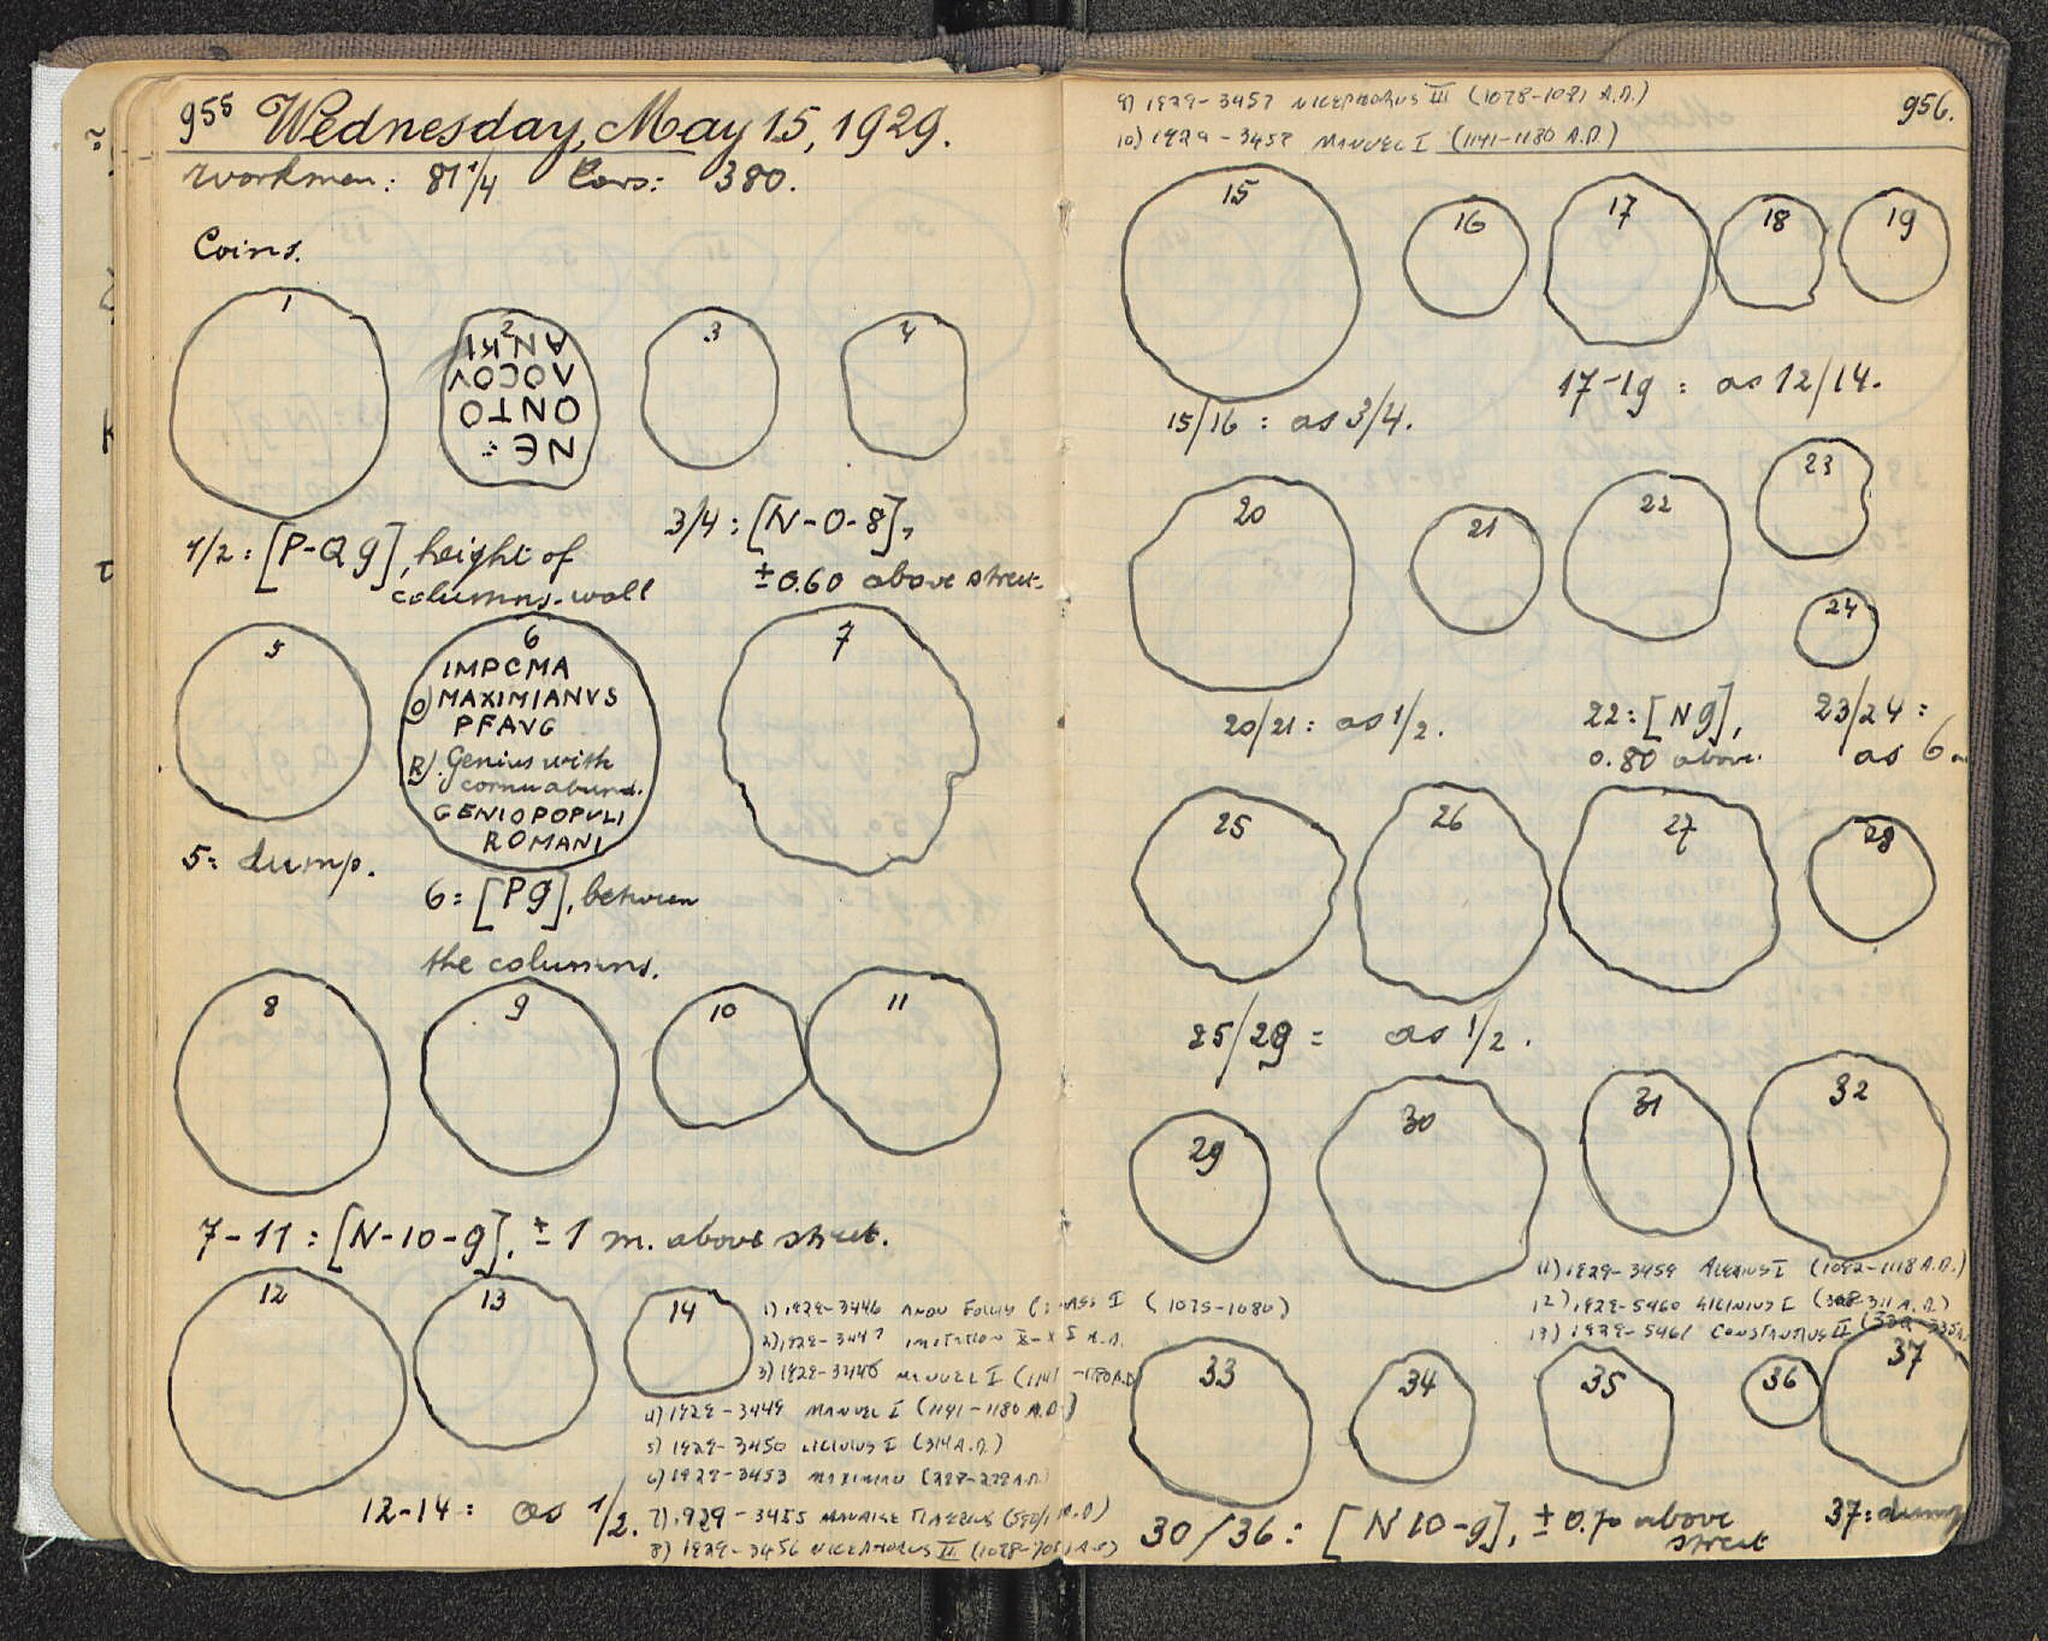 955 Wednesday, May 15, 1929.
Workmen: 81 1/4 Cars: 380.
Coins.
1
2
3
4
NE
ONTO
ΛOCOV
ANKI
1/2: [P-Q 9], height of
columns-wall
3/4: [N-O-8],
±0.60 above street.
5
6
IMPCMA
O) MAXIMIANVS
PFAVG
R). Genius with
cornuabund.
GENIOPOPVLI
ROMANI
7
5: dump.
6: [P9], between
the columns.
8
9
10
11
7-11: [N-10-9], ±1 m. above street.
12
13
14
1) 1929-3446 Anon Follis Class I (1075-1080)
2) 1929-3447 imitation X-XI A.D.
3) 1929-3448 Manuel I (1141-1180 A.D.)
4) 1929-3449 Manuel I (1141-1180 A.D.)
5) 1929-3450 Licinius I (314 A.D.)
6) 1929-3453 Maximian
7) 1929-3455 Maurice Tiberius
8) 1929-3456 Nicephorus III (1078-1081 A.D)
12-14: as 1/2.
956.
9) 1929-3457 Nicephorus III (1078-1081 A.D.)
10) 1929-3458 Manuel I (1141-1180 A.D.)
15
16
17
18
19
15/16: as 3/4.
17-19: as 12/14.
20
21
22
23
24
20/21: as 1/2.
22: [N9],
0.80 above.
23/24:
as 6
25
26
27
28
25/29: as 1/2.
29
30
31
32
11) 1929-3459 Alexius I (1092-1118 A.D.)
12) 1929-5460 Licinius I (308-311 A.D.)
13) 1929-5461 Constantius II
33
34
35
36
37
30/36: [N10-9], ±0.70 above
street
37: dump